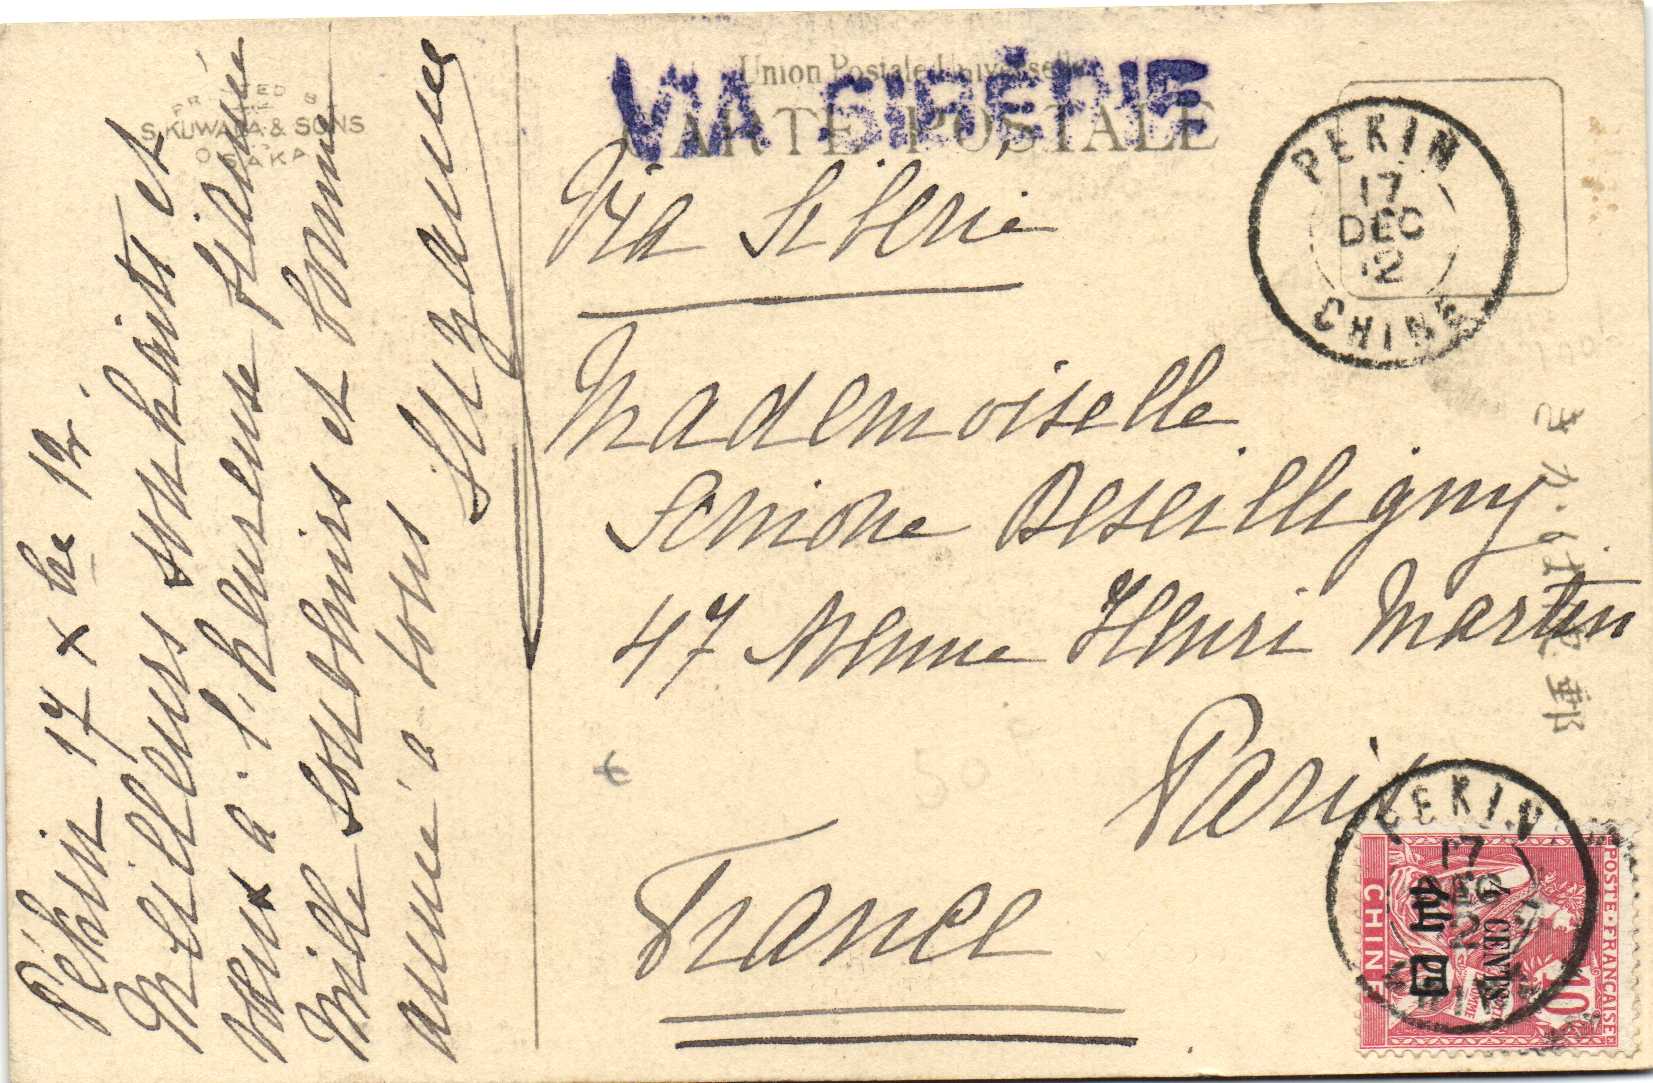 Union Postale Universelle
CARTE POSTALE
VIA SIBÉRIE
PRINTED BY
S.KUWADA & SONS
OSAKA
PEKIN
17
DEC
12
CHINE
Via Sibérie
Mademoiselle
Simone Deseilligny
47 Avenue Henri Martin
Paris
France
Pékin 17 Xbre 12
Meilleurs souhaits et
vœux à l'heureuse fiancée
Mille souvenirs et bonne
année à tous
Suzanne
PEKIN
17
DEC
12
POSTE FRANÇAISE
CHINE
4 CENTS
分四
10
50 F